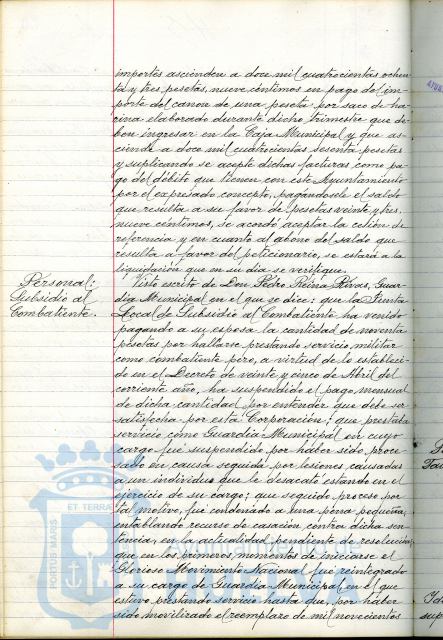 importes ascienden a doce mil cuatrocientas ochen
ta y tres pesetas, nueve céntimos en pago del im-
porte del canon de una peseta por saco de ha-
rina elaborado durante dicho trimestre que de-
ben ingresar en la Caja Municipal y que as-
ciende a doce mil cuatrocientas sesenta pesetas
y suplicando se acepte dichas facturas como pa-
go del débito que tienen con este Ayuntamiento
por el expresado concepto, pagándosele el saldo
que resulta a su favor de pesetas veinte y tres,
nueve céntimos, se acordó aceptar la cesión de
referencia y en cuanto al abono del saldo que
resulta a favor del peticionario, se estará a la
liquidación que en su día se verifique.
Personal:
Subsidio al
Combatiente.
Visto escrito de Don Pedro Reina Rivas, Guar-
dia Municipal en el que se dice: que la Junta
Local de Subsidio al Combatiente ha venido
pagando a su esposa la cantidad de noventa
pesetas por hallarse prestando servicio militar
como combatiente pero, a virtud de lo estableci-
do en el Decreto de veinte y cinco de Abril del
corriente año, ha suspendido el pago mensual
de dicha cantidad por entender que debe ser
satisfecha por esta Corporación; que prestaba
servicio como Guardia Municipal en cuyo
cargo fué suspendido por haber sido proce-
sado en causa seguida por lesiones causadas
a un individuo que le desacató estando en el
ejercicio de su cargo; que seguido proceso por
tal motivo, fué condenado a una pena pequeña,
entablando recurso de casación contra dicha sen-
tencia, en la actualidad pendiente de resolución;
que en los primeros momentos de iniciarse el
Glorioso Movimiento Nacional fué reintegrado
a su cargo de Guardia Municipal en el que
estuvo prestando servicio hasta que, por haber
sido movilizado el reemplazo de mil novecientos
PORTUS MARIS ET TERRA